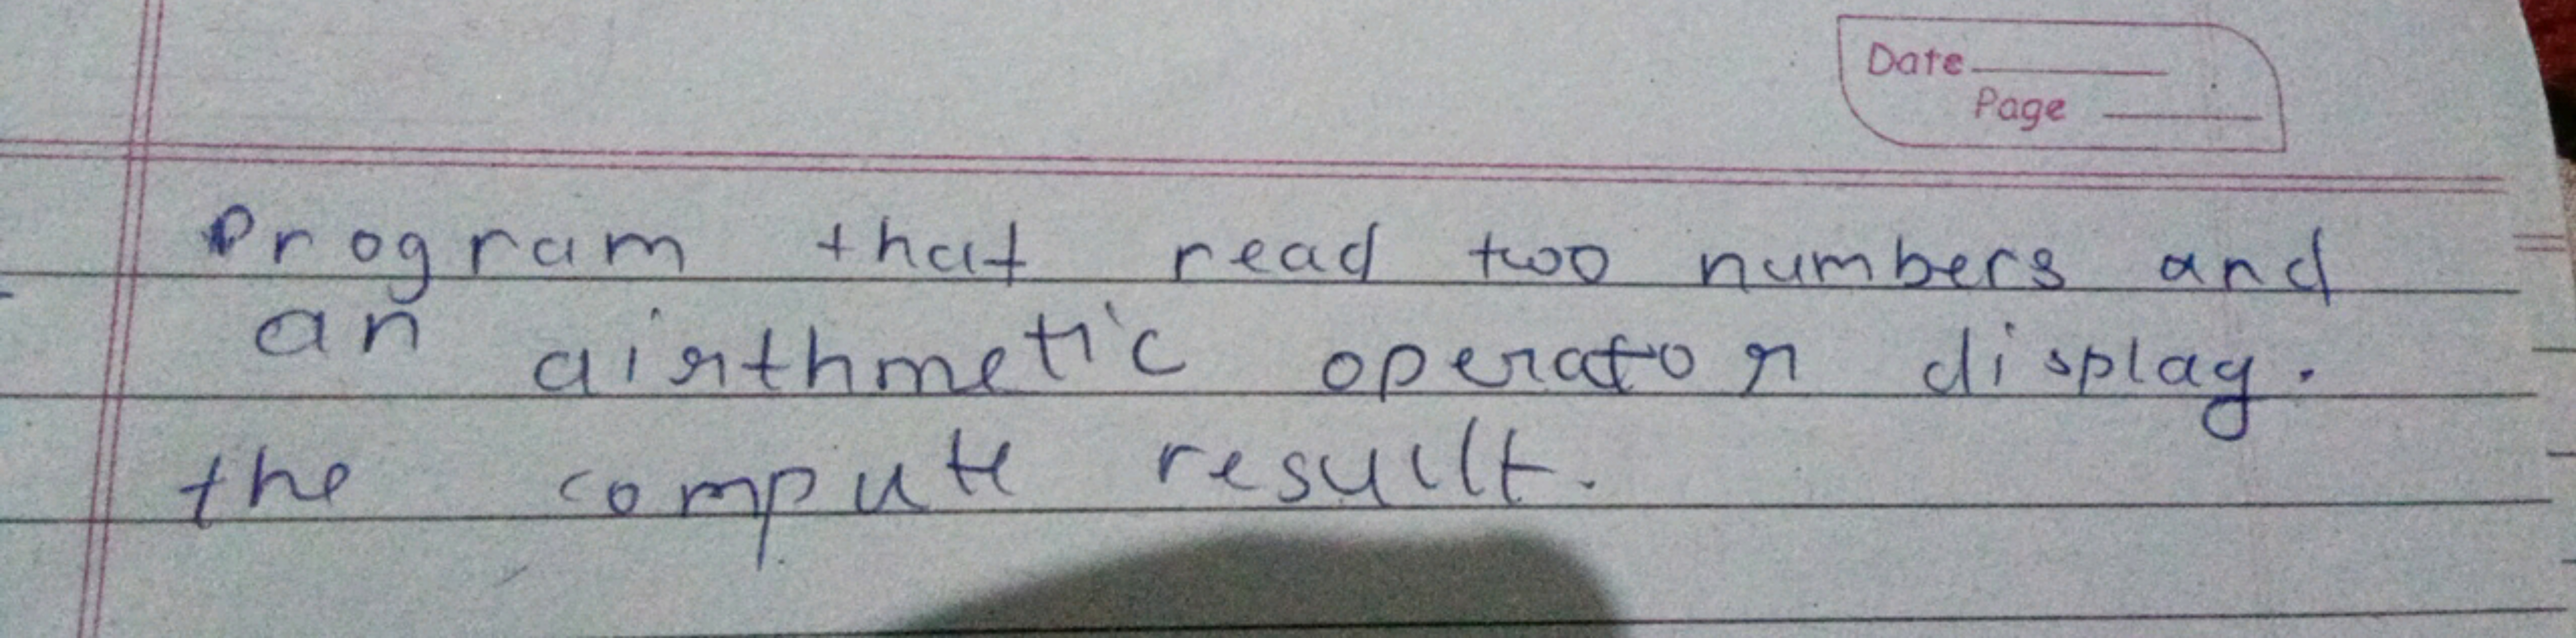 Date
Page
Program that read two numbers and
an airthmetic operator display.
the compute resullt.